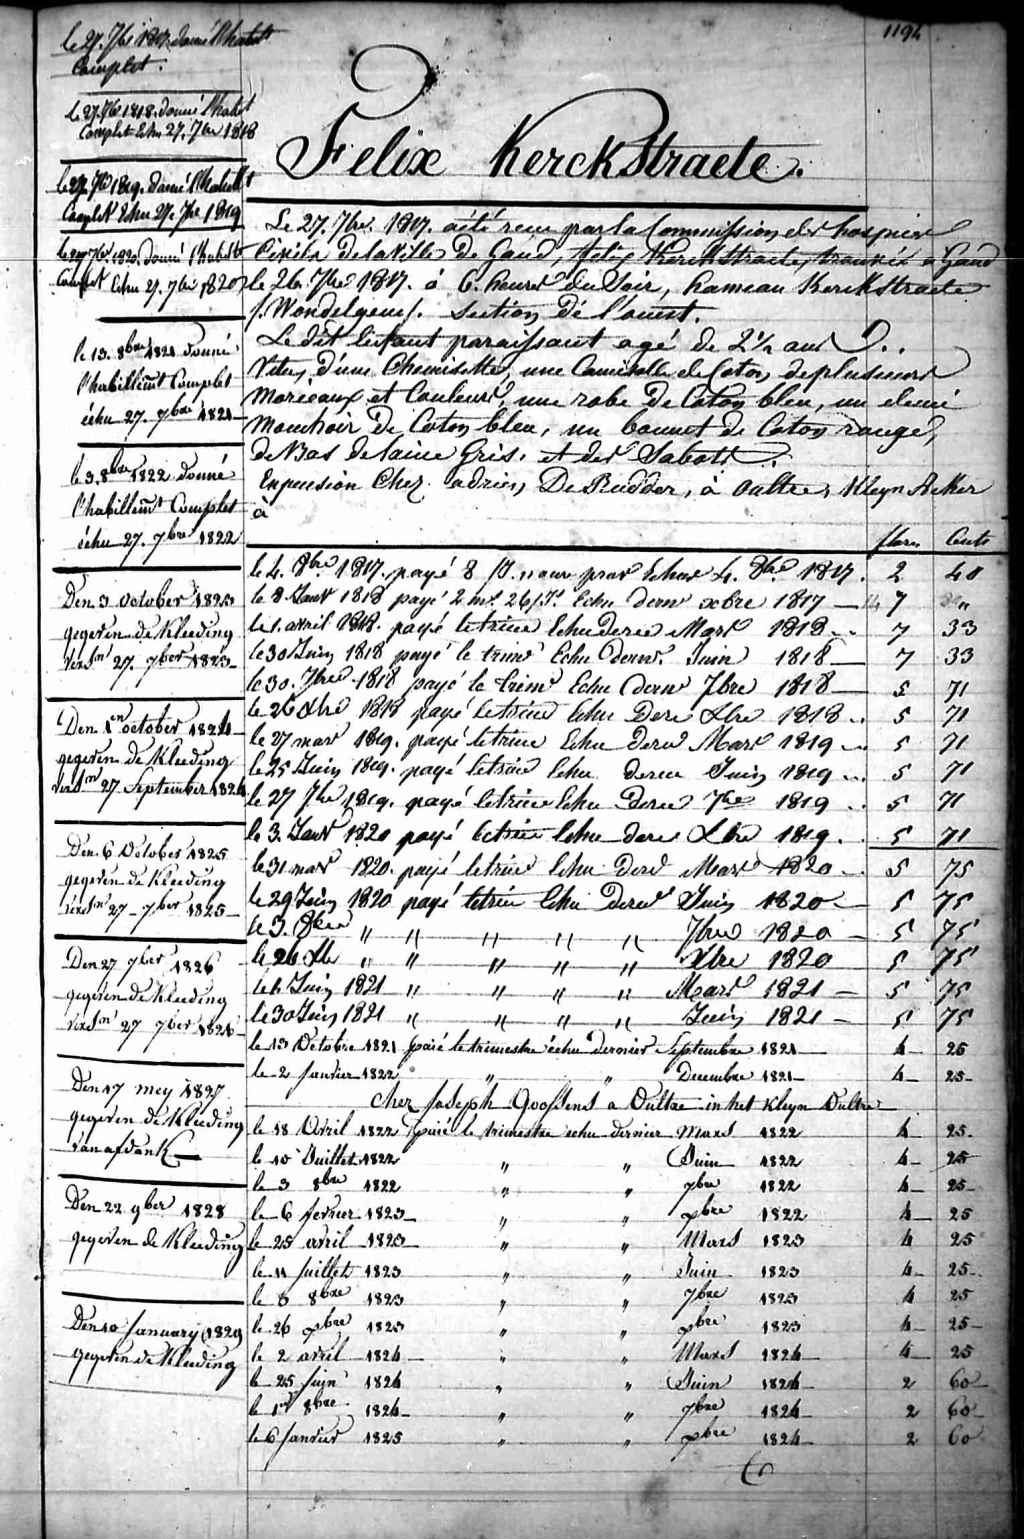 1194
le 27. 7bre 1817. donné l'habill
Complet.
le 27. 7bre 1818. donné l'habil
Complet Echu 27. 7bre 1818
le 27. 7bre 1819. donné l'habillt
Complet Echu 27. 7bre 1819
le 27 7bre 1820. donné l'habillt
Complet Echu 27. 7bre 1820
le 13. 8bre 1821 donné
l'habillemt Complet
échu 27. 7bre 1821
le 3. 8bre 1822 donné
l'habillemt Complet
échu 27. 7bre 1822
Den 3 October 1823
gegeven de Kleeding
27. 7ber 1823
Den 1en october 1824
gegeven de Kleeding
27 September 1824
Den 6 October 1825
gegeven de Kleeding
27 - 7ber 1825
Den 27 7ber 1826
gegeven de Kleeding
27 7ber 1826
Den 17 mey 1827
gegeven de Kleeding
van afdank
Den 22 9ber 1828
gegeven de Kleeding
Den 10 January 1829
gegeven de Kleeding
Felix Kerckstraete.
Le 27. 7bre. 1817. a été recu par la Commission des hospices
Civils de la Ville de Gand, Felix Kerckstraete, trouvé à Gand
le 26. 7bre 1817. à 6. heures du Soir, hameau Kerckstraete
/. Wondelgem /. Section de l'ouest.
Le dit Enfant paraissant agé de 2½ ans
Vetu, d'une Chemisette, une Camisolle de Coton de plusieurs
morceaux et Couleurs, une robe de Coton bleu, un demi
mouchoir de Coton bleu, un bonnet de Coton rouge,
de Bas de laine Gris, et des Sabots.
En pension Chez adrien De Budder, à Oultre, Kleyn Acker
à
flor. Cents
le 4. 8bre 1817. payé 8 jr. nour pror Echus 4. 8bre 1817. 2 40
le 8 Janr 1818 payé 2 ms. 26 jrs. Echu dernr xbre 1817 7 "
le 1. avril 1818. payé le trim Echu dernr Mars 1818 7 33
le 30 Juin 1818 payé le trimr Echu dernr. Juin 1818 7 33
le 30. 7bre 1818 payé le trimr Echu dernr 7bre 1818 5 71
le 26 Xbre 1818 payé le trim Echu dernr Xbre 1818 5 71
le 27 mars 1819. payé le trim Echu dernr Mars 1819 5 71
le 25 Juin 1819. payé le trim Echu dernr Juin 1819 5 71
le 27 7bre 1819. payé le trim Echu dernr 7bre 1819 5 71
le 3 Janr 1820 payé le trim Echu dernr Xbre 1819. 5 71
le 31 mars 1820. payé le trim Echu dernr Mars 1820 5 75
le 29 Juin 1820 payé le trim Echu dernr Juin 1820 5 75
le 3. 8bre " " " " " 7bre 1820 5 75
le 26 Xbr " " " " " Xbre 1820 5 75
le 6 Juin 1821 " " " " Mars 1821 5 75
le 30 Juin 1821 " " " " Juin 1821 5 75
le 13 Octobre 1821 paié le trimestre échu dernier Septembre 1821 4 25
le 2 Janvier 1822 " " Decembre 1821 4 25
chez Joseph Goossens a Oultre in het Kleyn Oultre
le 18 Avril 1822 paié le trimestre echu dernier Mars 1822 4 25
le 10 Juillet 1822 " " Juin 1822 4 25
le 3 8bre 1822 " " 7bre 1822 4 25
le 6 fevrier 1823 " " xbre 1822 4 25
le 25 avril 1823 " " Mars 1823 4 25
le 11 Juillet 1823 " " Juin 1823 4 25
le 8 8bre 1823 " " 7bre 1823 4 25
le 26 xbre 1823 " " xbre 1823 4 25
le 2 avril 1824 " " Mars 1824 4 25
le 25 Juin 1824 " " Juin 1824 2 60
le 1er 8bre 1824 " " 7bre 1824 2 60
le 6 Janvier 1825 " " xbre 1824 2 60